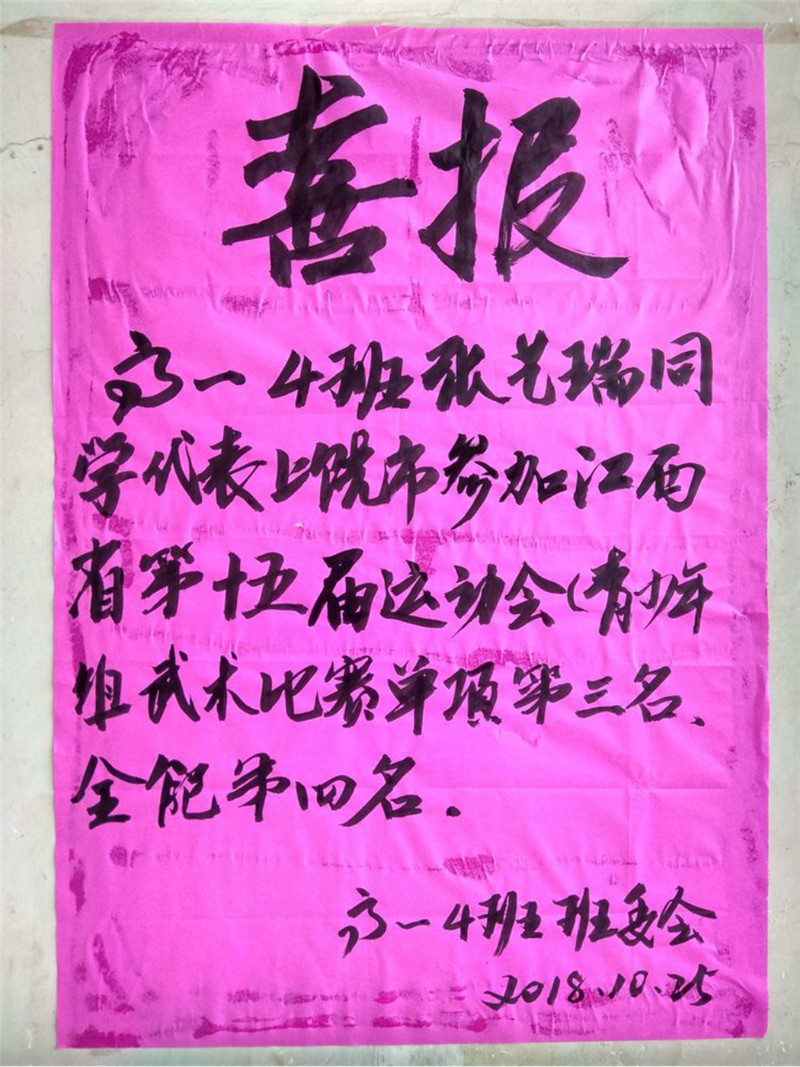 喜报
高一4班张艺瑞同
学代表上饶市参加江西
省第十五届运动会(青少年
组武术比赛单项第三名、
全能第四名.
高一4班班委会
2018.10.25